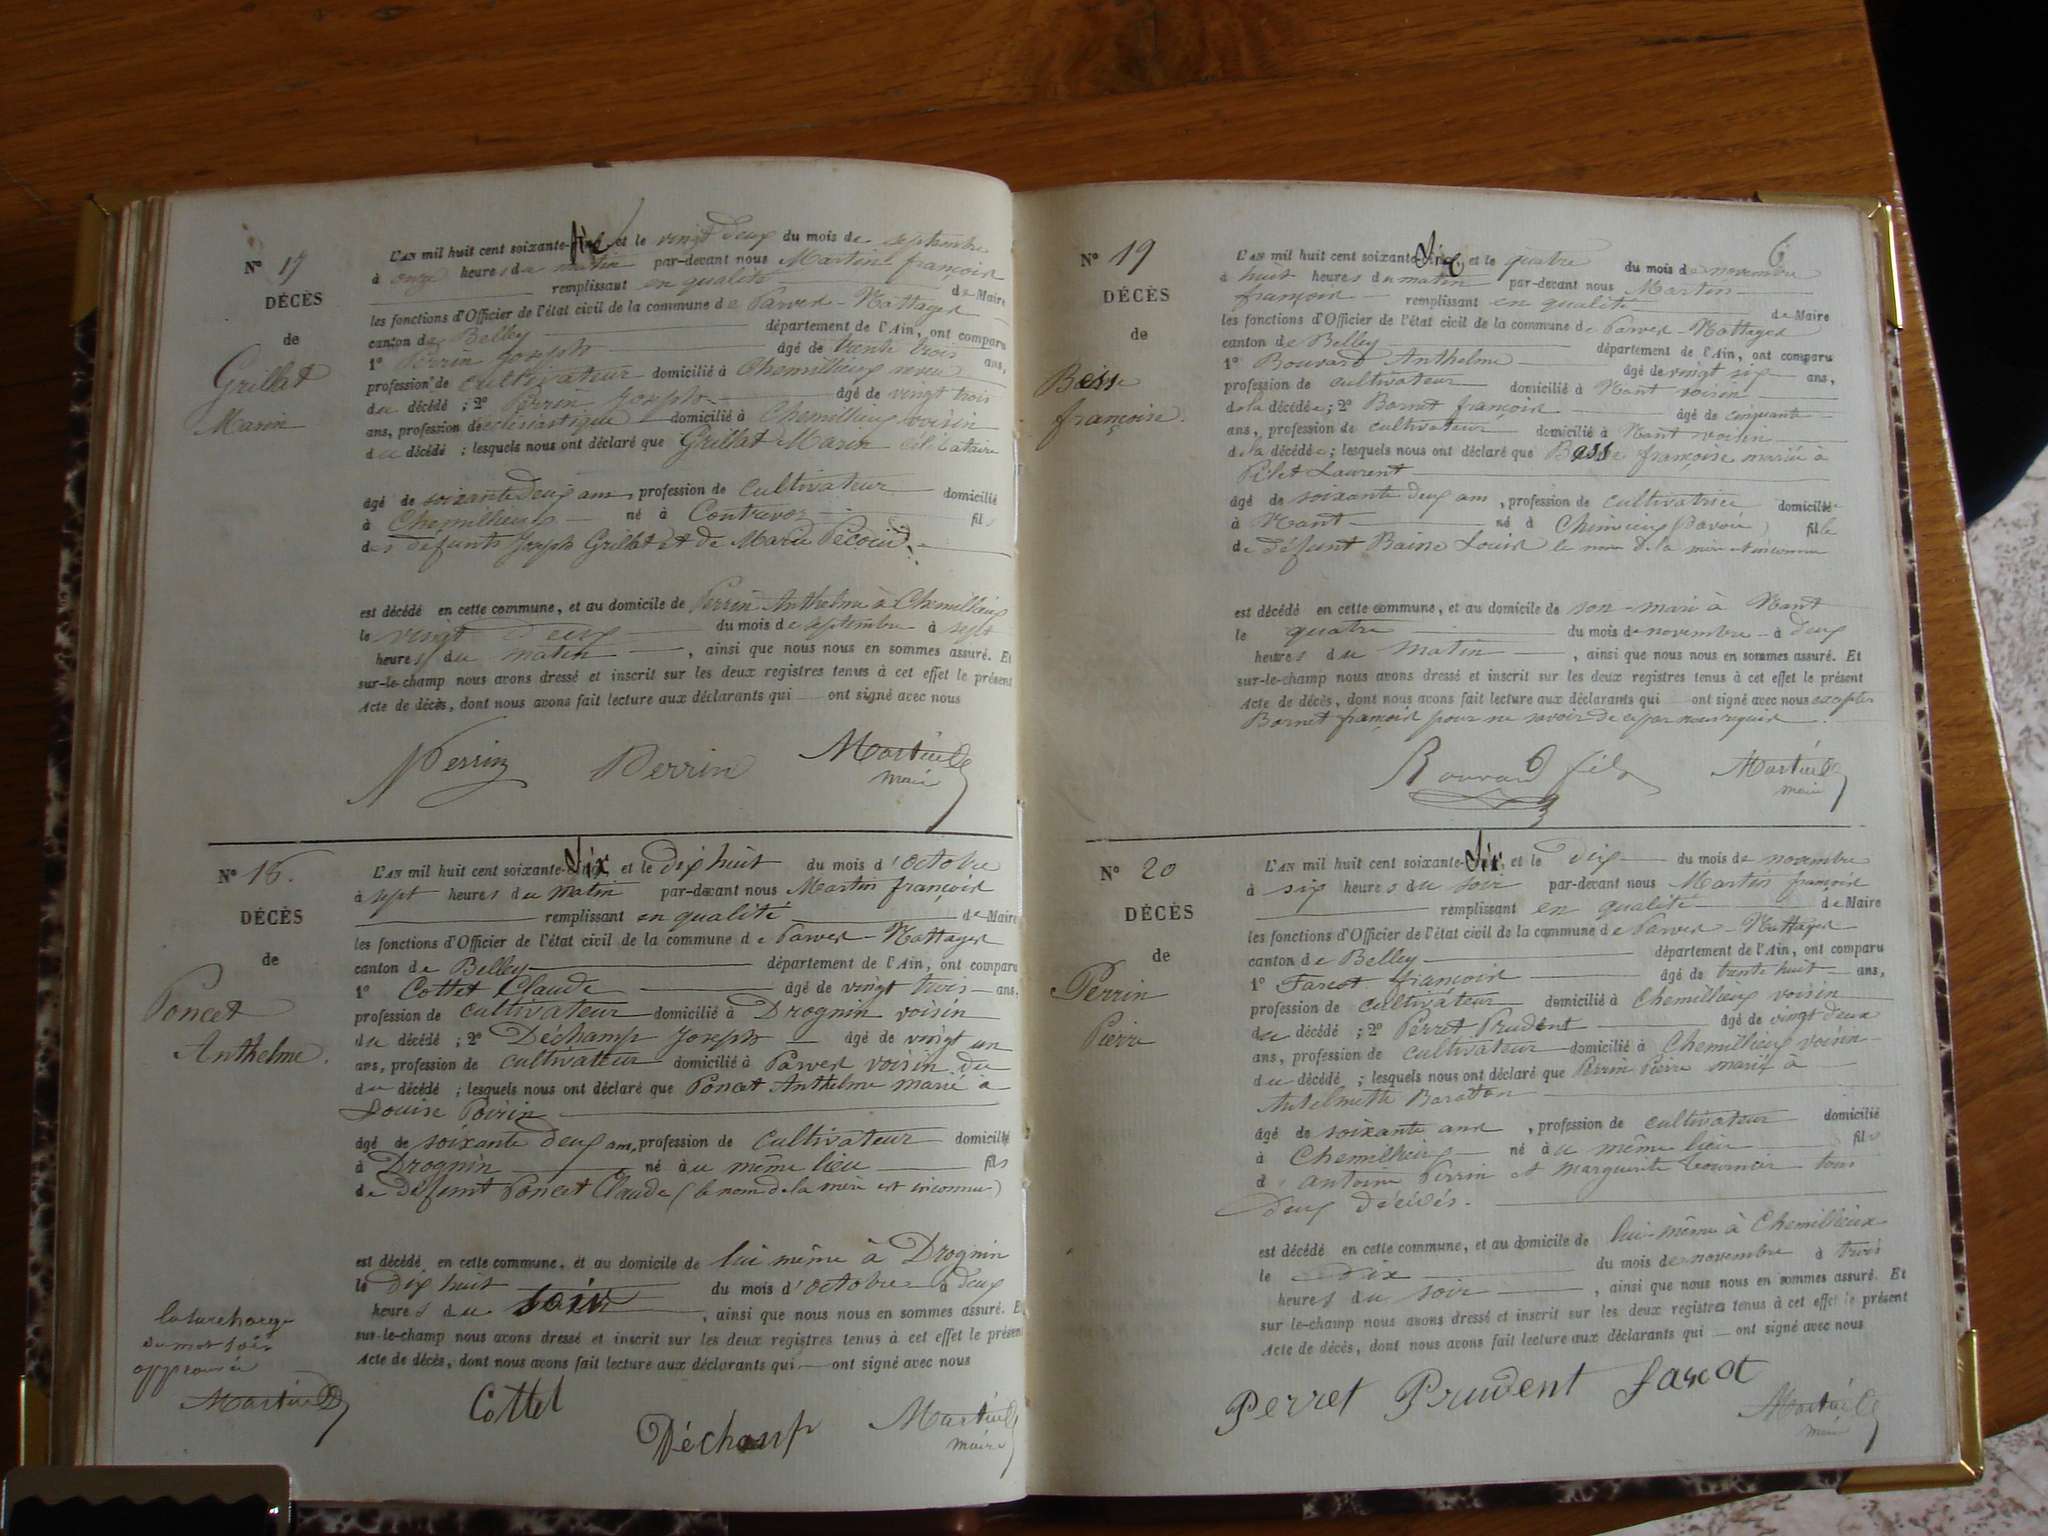 N° 17
DÉCÈS
de
Grillat
Marin
L'AN mil huit cent soixante-six, et le vingt deux du mois de septembre
à onze heures du matin par-devant nous Martin françois
remplissant en qualité de Maire
les fonctions d'Officier de l'état civil de la commune de Parves-Nattages
canton de Belley département de l'Ain, ont comparu
1° Perrin Joseph âgé de trente trois ans,
profession de cultivateur domicilié à Chemillieux neveu
du décédé ; 2° Perrin Joseph âgé de vingt trois
ans, profession de écclésiastique domicilié à Chemillieux voisin
du décédé ; lesquels nous ont déclaré que Grillat Marin célibataire
âgé de soixante deux ans, profession de cultivateur domicilié
à Chemillieux né à Contrevoz fils
des défunts Joseph Grillat et de Marie
est décédé en cette commune, et au domicile de Perrin Anthelme à Chemillieux
le vingt deux du mois de septembre à sept
heures du matin, ainsi que nous nous en sommes assuré. Et
sur-le-champ nous avons dressé et inscrit sur les deux registres tenus à cet effet le présent
Acte de décès, dont nous avons fait lecture aux déclarants qui ont signé avec nous
Perrin Perrin Martin
maire
N° 18.
DÉCÈS
de
Poncet
Anthelme.
L'AN mil huit cent soixante-six, et le dix huit du mois d'octobre
à sept heures du matin par-devant nous Martin françois
remplissant en qualité de Maire
les fonctions d'Officier de l'état civil de la commune de Parves-Nattages
canton de Belley département de l'Ain, ont comparu
1° Cottet Claude âgé de vingt trois ans,
profession de cultivateur domicilié à Drognin voisin
du décédé ; 2° Déchamp Joseph âgé de vingt un
ans, profession de cultivateur domicilié à Parves voisin du
du décédé ; lesquels nous ont déclaré que Poncet Anthelme marié à
Louise Poirin
âgé de soixante deux ans, profession de cultivateur domicilié
à Drognin né au même lieu fils
de défunt Poncet Claude (le nom de la mère est inconnu)
est décédé en cette commune, et au domicile de lui même à Drognin
le dix huit du mois d'octobre à deux
heures du soir, ainsi que nous nous en sommes assuré. Et
sur-le-champ nous avons dressé et inscrit sur les deux registres tenus à cet effet le présent
Acte de décès, dont nous avons fait lecture aux déclarants qui ont signé avec nous
la surcharge
du mot soir
approuvée
Martin
Cottet
Déchamp
Martin
maire
6
N° 19
DÉCÈS
de
Besse
françoise.
L'AN mil huit cent soixante-six, et le quatre du mois de novembre
à huit heures du matin par-devant nous Martin
françois remplissant en qualité de Maire
les fonctions d'Officier de l'état civil de la commune de Parves-Nattages
canton de Belley département de l'Ain, ont comparu
1° Bouvard Anthelme âgé de vingt six ans,
profession de cultivateur domicilié à Nant voisin
de la décédée ; 2° Bornet françois âgé de cinquante
ans, profession de cultivateur domicilié à Nant voisin
de la décédée ; lesquels nous ont déclaré que Besse françoise mariée à
Pilet Laurent
âgé de soixante deux ans, profession de cultivatrice domiciliée
à Nant né à (Savoie) fille
de défunt Baisse Louis le nom de la mère est inconnu
est décédé en cette commune, et au domicile de son mari à Nant
le quatre du mois de novembre à deux
heures du matin, ainsi que nous nous en sommes assuré. Et
sur-le-champ nous avons dressé et inscrit sur les deux registres tenus à cet effet le présent
Acte de décès, dont nous avons fait lecture aux déclarants qui ont signé avec nous excepté
Bornet françois pour ne savoir de ce par nous requis
Bouvard fils Martin
maire
N° 20
DÉCÈS
de
Perrin
Pierre
L'AN mil huit cent soixante-six, et le dix du mois de novembre
à six heures du soir par-devant nous Martin françois
remplissant en qualité de Maire
les fonctions d'Officier de l'état civil de la commune de Parves-Nattages
canton de Belley département de l'Ain, ont comparu
1° Fascot françois âgé de trente huit ans,
profession de cultivateur domicilié à Chemillieux voisin
du décédé ; 2° Perret Prudent âgé de vingt deux
ans, profession de cultivateur domicilié à Chemillieux voisin
du décédé ; lesquels nous ont déclaré que Perrin Pierre marié à
Antelmette Baratton
âgé de soixante ans, profession de cultivateur domicilié
à Chemillieux né au même lieu fils
d'antoine Perrin et marguerite tous
deux décédés.
est décédé en cette commune, et au domicile de lui-même à Chemillieux
le dix du mois de novembre à trois
heures du soir, ainsi que nous nous en sommes assuré. Et
sur le-champ nous avons dressé et inscrit sur les deux registres tenus à cet effet le présent
Acte de décès, dont nous avons fait lecture aux déclarants qui ont signé avec nous
Perret Prudent Fascot
Martin
maire